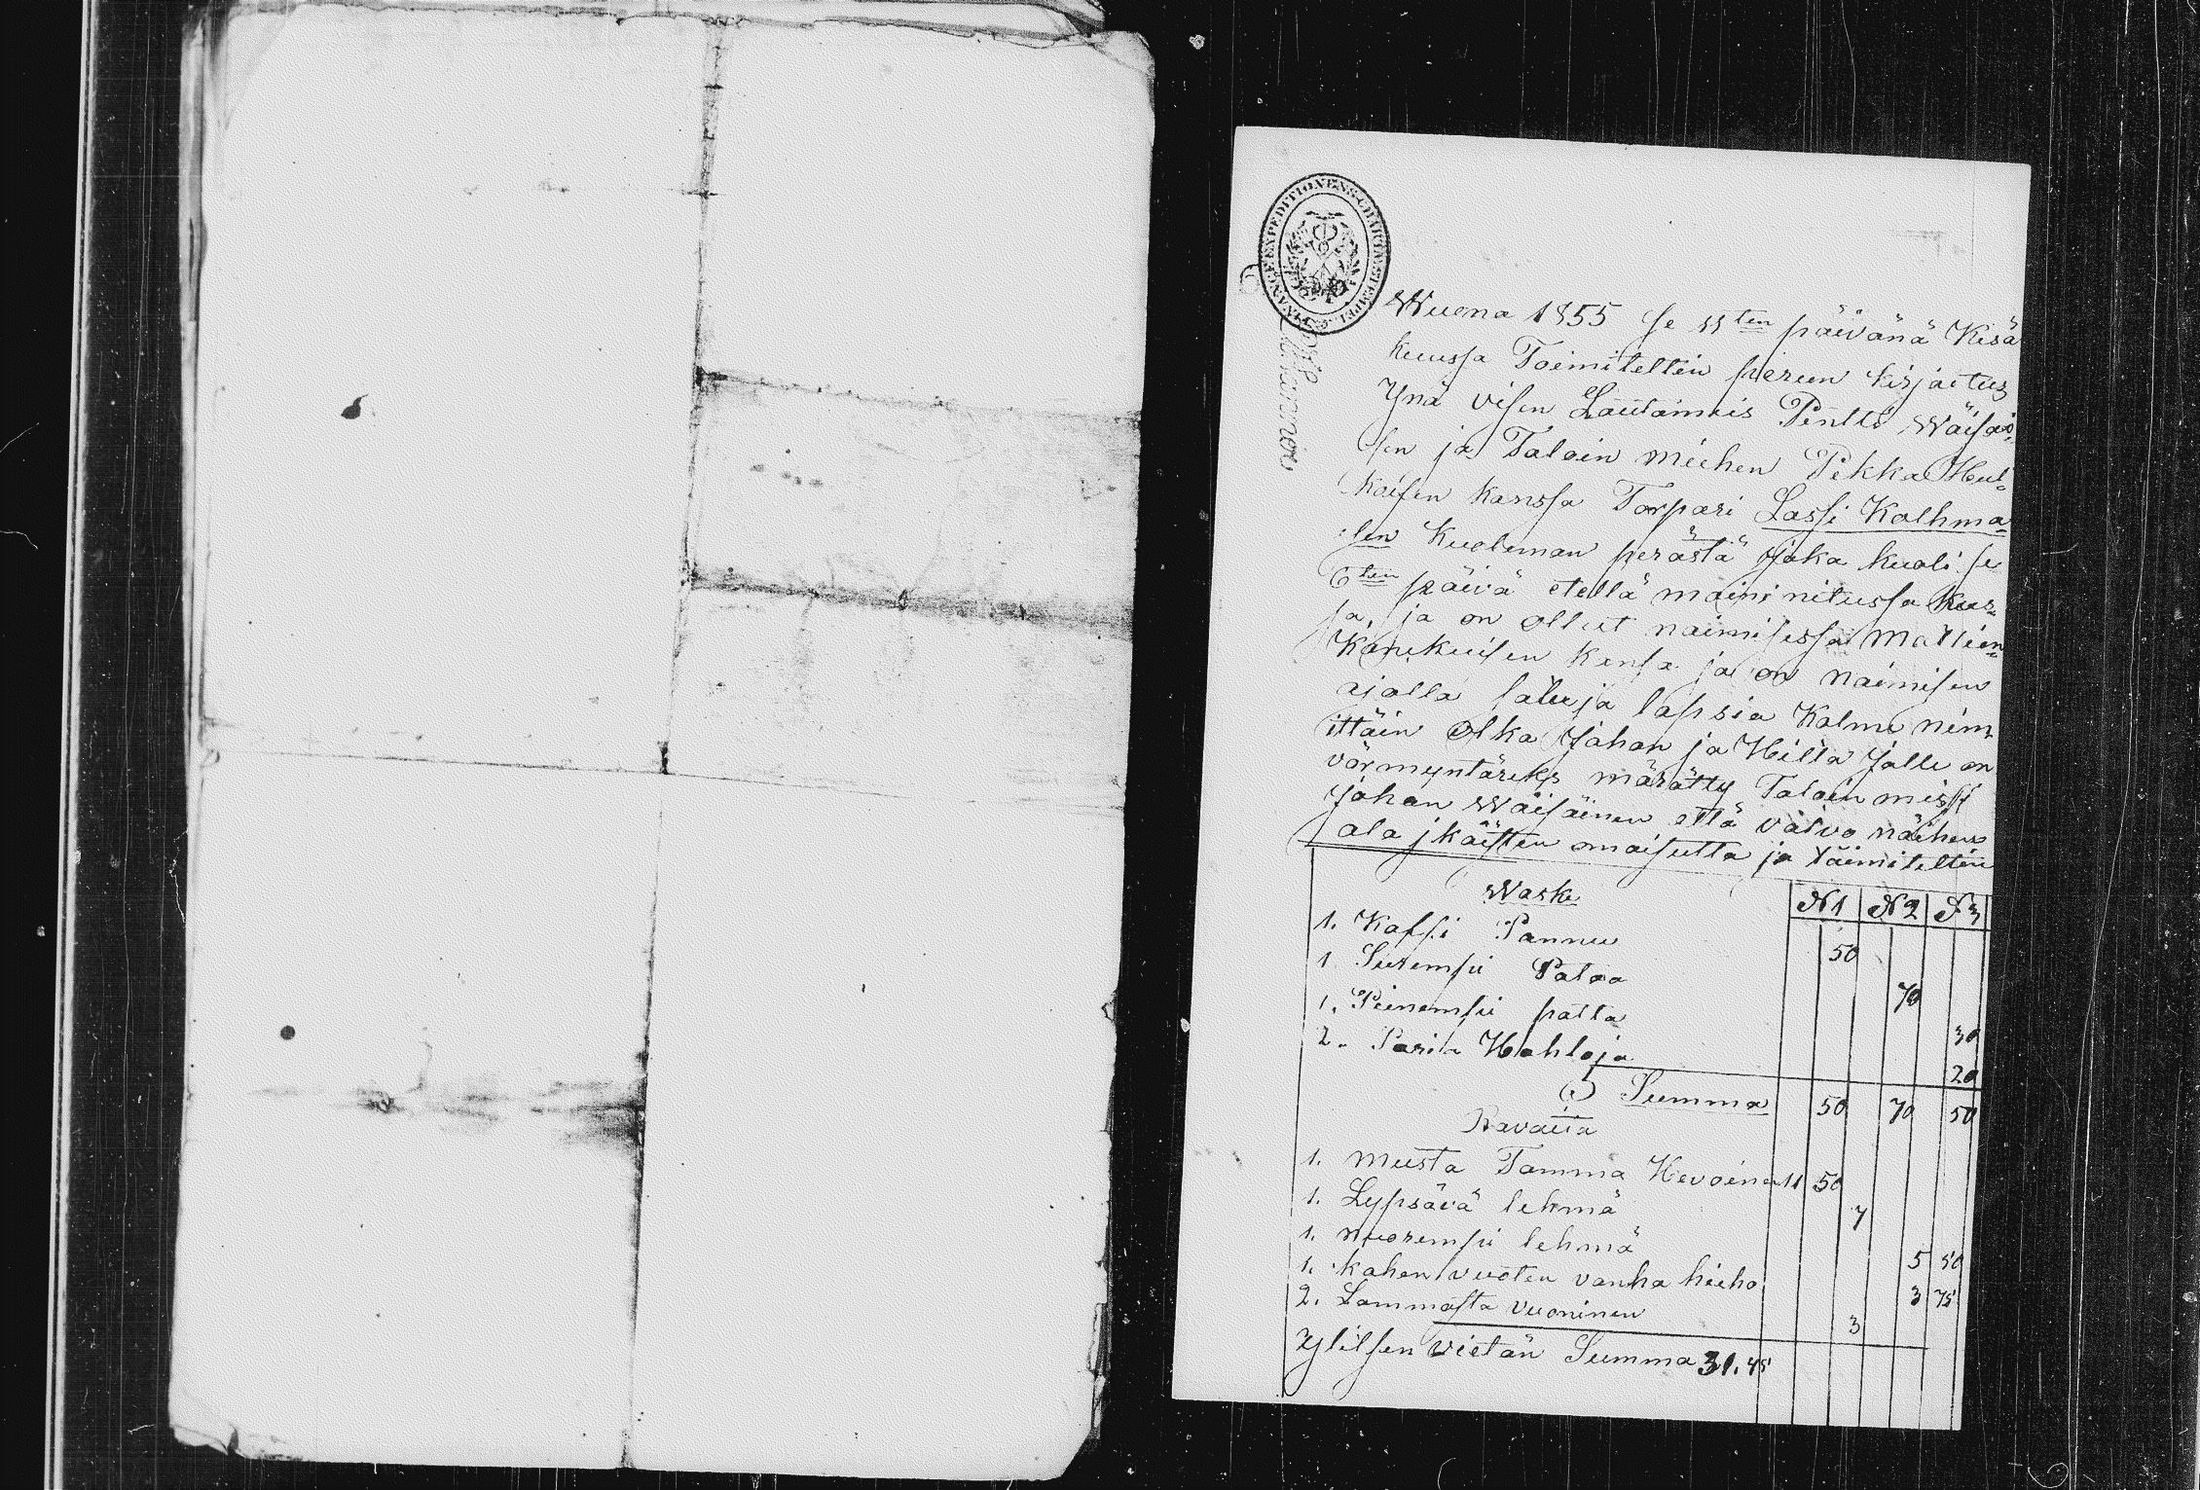 FINANCE EXPEDITIONENS CHARTÆ STEMPEL
Wuona 1855 se 11ten päivänä Kisä
kuussa Toimiteltiin perun kirjoitus
Ynä visen Lautamis Pentti Wäisäi-
sen ja Taloin miehen Pekka Hul-
koisen kanssa Torpari Lassi Kolhma-
isen Kuoleman perästä Joka kuoli se
6ten päivä etellä maini nitussa kus-
sa, ja on ollut naimisessa Mallien
Kansa ja on naimisen
ajalla lapsia Kolme nim-
ittäin Olka Johan ja Hilla Jolle on
vörmyntäreks märätty Taloin missi
Johan Wäisäinen että valvo näihen
ala jkäisten omaisutta ja täimiteltiin
Waske
N1 N2 N3
1. Kaffi Pannu 50
1 Surempi Pataa 70
1. Pienempi patta 30
2. Paria Hohloja 20
5 Summa 50 70 50
Ravatia
1. musta Tamma Hevoinen 11 50
1. Lypsävä lehmä 7
1. nuorempi lehmä 5 50
1. kahen vuoten vanha hieho 3 75
2. Lammasta vuoninen 3
Ylitsen vietän Summa 31.45